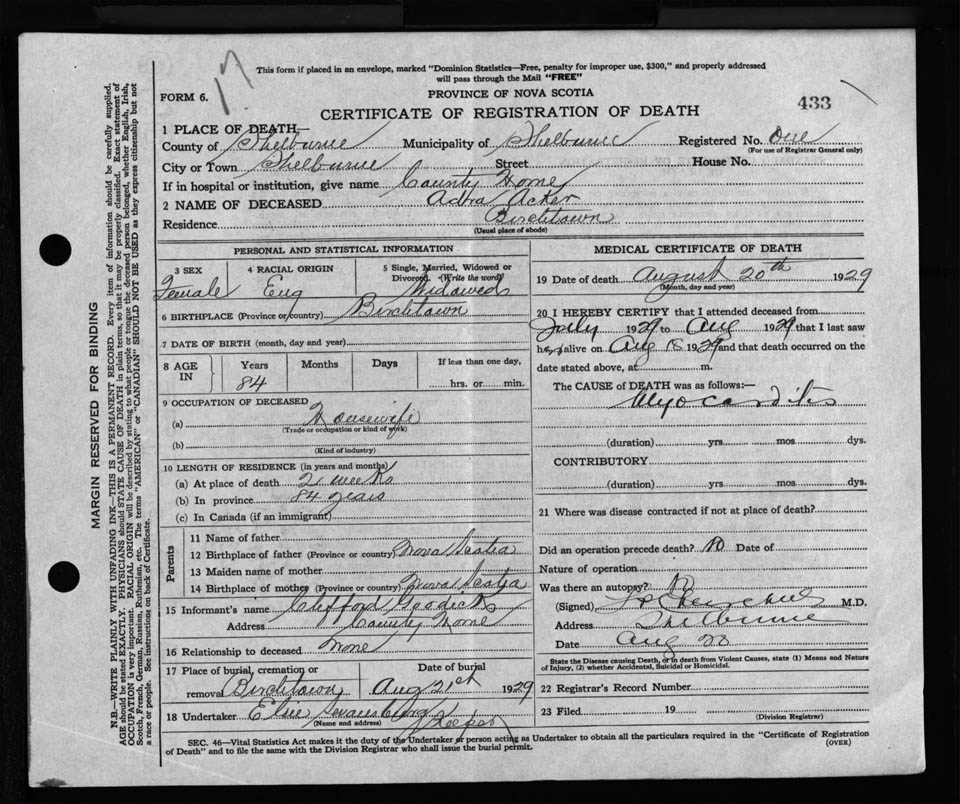 17
This form if placed in an envelope, marked "Dominion Statistics—Free, penalty for improper use, $300," and properly addressed
will pass through the Mail "FREE"
FORM 6.
PROVINCE OF NOVA SCOTIA
433
CERTIFICATE OF REGISTRATION OF DEATH
1 PLACE OF DEATH,—
County of Shelburne Municipality of Shelburne Registered No. One
(For use of Registrar General only)
City or Town Shelburne Street House No.
If in hospital or institution, give name County Home
2 NAME OF DECEASED Acker
Residence Birchtown
(Usual place of abode)
PERSONAL AND STATISTICAL INFORMATION
3 SEX 4 RACIAL ORIGIN 5 Single, Married, Widowed or
Divorced (Write the word)
Female Eng Widowed
6 BIRTHPLACE (Province or country) Birchtown
7 DATE OF BIRTH (month, day and year)
8 AGE IN Years Months Days If less than one day,
84 hrs. or min.
9 OCCUPATION OF DECEASED
(a) Housewife
(Trade or occupation or kind of work)
(b)
(Kind of industry)
10 LENGTH OF RESIDENCE (in years and months)
(a) At place of death 2 weeks
(b) In province 84 years
(c) In Canada (if an immigrant)
Parents
11 Name of father
12 Birthplace of father (Province or country) Nova Scotia
13 Maiden name of mother
14 Birthplace of mother (Province or country) Nova Scotia
15 Informant's name Clifford
Address County Home
16 Relationship to deceased None
17 Place of burial, cremation or Date of burial
removal Birchtown Aug 21st 1929
18 Undertaker Keeper
(Name and address)
MEDICAL CERTIFICATE OF DEATH
19 Date of death August 20th 1929
(Month, day and year)
20 I HEREBY CERTIFY that I attended deceased from
July 1929 to Aug 1929 that I last saw
her alive on Aug 18 1929 and that death occurred on the
date stated above, at m.
The CAUSE of DEATH was as follows:—
Myocarditis
(duration) yrs. mos. dys.
CONTRIBUTORY
(duration) yrs. mos. dys.
21 Where was disease contracted if not at place of death?
Did an operation precede death? No Date of
Nature of operation
Was there an autopsy? No
(Signed) M.D.
Address Shelburne
Date Aug 20
State the Disease causing Death, or in death from Violent Causes, state (1) Means and Nature
of Injury, (2) whether Accidental, Suicidal or Homicidal.
22 Registrar's Record Number
23 Filed 19
(Division Registrar)
SEC. 46—Vital Statistics Act makes it the duty of the Undertaker or person acting as Undertaker to obtain all the particulars required in the "Certificate of Registration
of Death" and to file the same with the Division Registrar who shall issue the burial permit. (OVER)
MARGIN RESERVED FOR BINDING
N.B.—WRITE PLAINLY WITH UNFADING INK—THIS IS A PERMANENT RECORD. Every item of information should be carefully supplied.
AGE should be stated EXACTLY. PHYSICIANS should STATE CAUSE OF DEATH in plain terms, so that it may be properly classified. Exact statement of
OCCUPATION is very important. RACIAL ORIGIN will be described by stating to what people or tongue the deceased person belonged, whether English, Irish,
Scotch, French, German, Russian, Ruthenian, etc. The terms "AMERICAN" or "CANADIAN" SHOULD NOT BE USED as they express citizenship but not
a race or people. See instructions on back of Certificate.